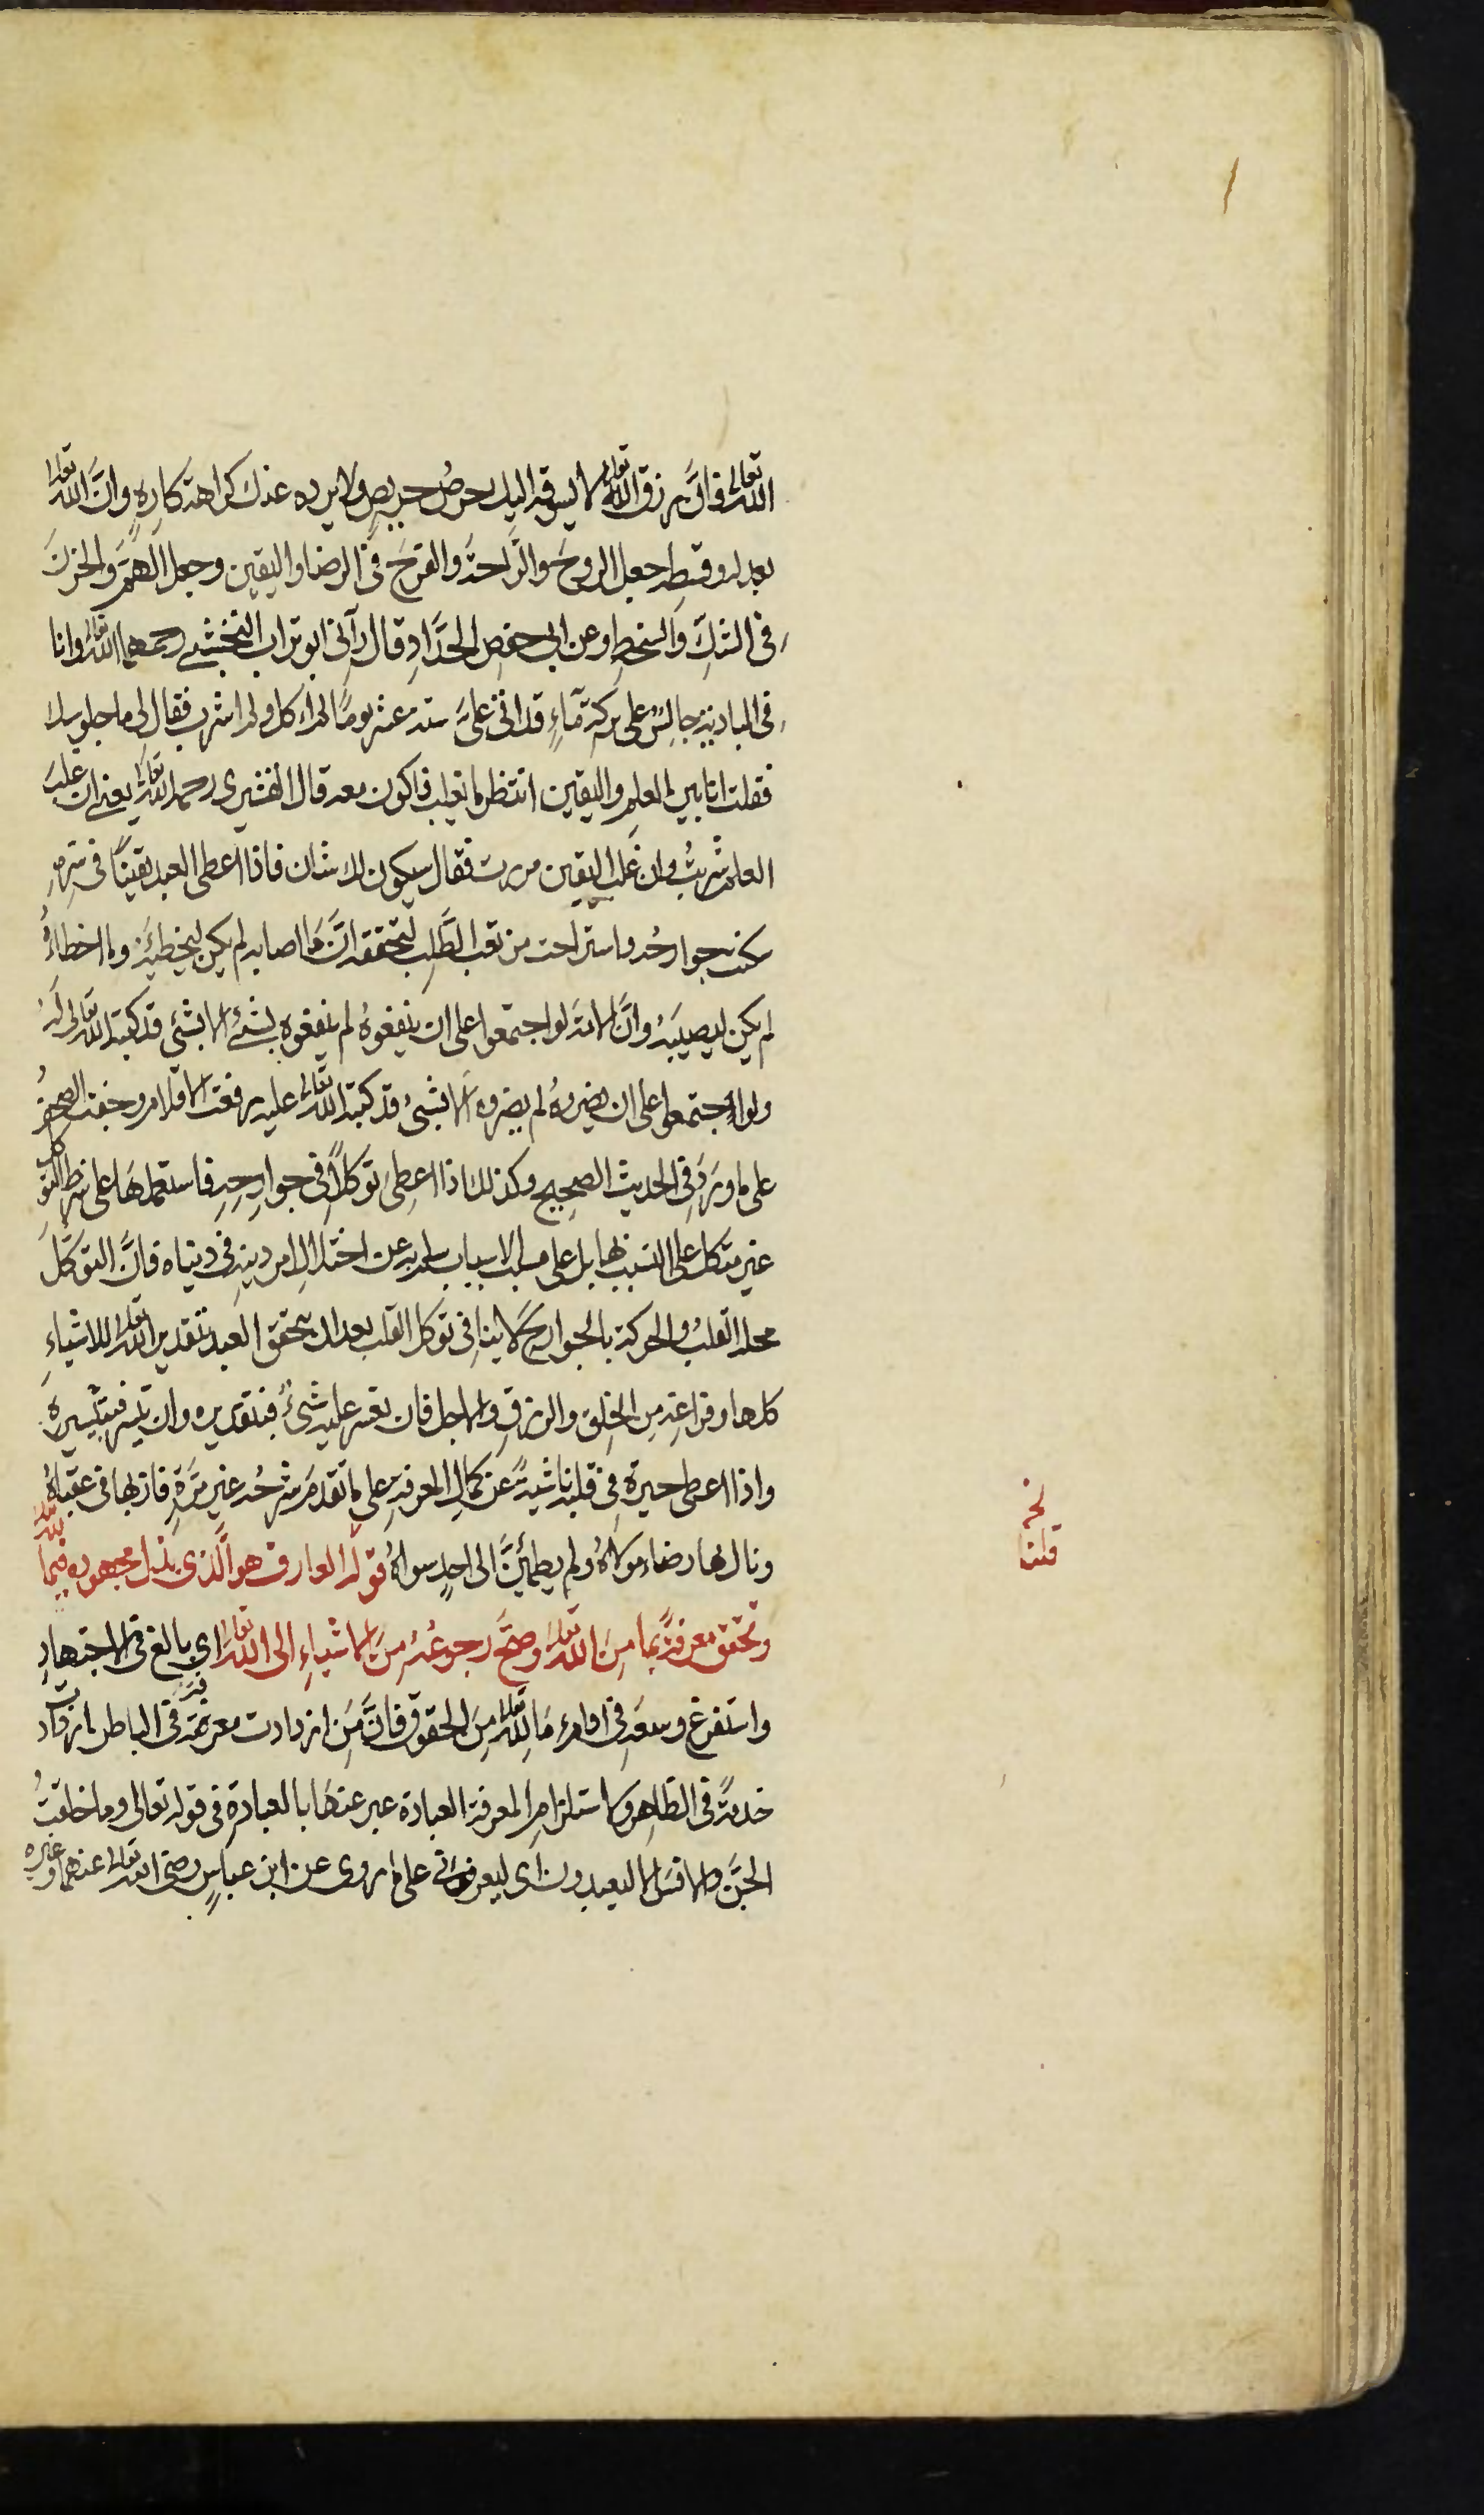 الله تعالى فانّ رزق الله تعالى لا يسوقه اليك حرصُ حريصٍ ولا يرده عنك كراهة كارهٍ وانّ الله تعالى
بعدله وقسطه جعل الروحَ والرَّاحةَ والفرحَ في الرضا واليقين وجعل الهمَّ والحزنَ
في الشكِّ والسخطِ وعن ابي حفصٍ الحدّادِ قال رآني ابو تراب النخشبي رحمهما الله تعالى وانا
في البادية جالسٌ على بركة ماءٍ قد اتى عليّ ستة عشر يومًا لم اكل ولم اشرب فقال لي ما جلوسك
فقلت انا بين العلم واليقين انتظر ما يغلب فاكون معه قال القشيري رحمه الله تعالى يعني ان غلب
العلم شربتُ وان غلب اليقين مررت فقال سيكون لك شان فاذا اعطى العبد يقينًا في سرّهِ
سكنت جوارحُه واستراحت من تعب الطَّلبِ لتحققه انّ ما اصابه لم يكن ليخطِئَه وما اخطاءهُ
لم يكن ليصيبَهُ وانّ الامة لو اجتمعوا على ان ينفعوهُ لم ينفعوه بشئٍ الا بشئٍ قد كتبه الله تعالى لَهُ
ولو اجتمعوا على ان يضروهُ لم يضروه الا بشئٍ قد كتبه الله تعالى عليه رفعت الاقلام وجفت الصحفُ
على ما ورَدَ في الحديث الصحيح وكذلك اذا اعطى توكلاً في جوارحِهِ فاستعملهَا على شرط التوكل
غير متكل على التسبب بها بل على مسبب الاسباب سلم به عن اختلال امر دينِهِ في دنياه فانَّ التوكّلَ
محله القلبُ والحركة بالجوارحِ لا ينافي توكل القلب بعد ان تحقق العبد بتقدير الله تعالى للاشياءِ
كلها وفراغِهِ من الخلق والرزقِ والاجل فان تعسر عليه شئٌ فبتقديره وان تيسر فبتيسيره
واذا اعطى حيرة في قلبه ناشيةً عن كمالِ المعرفةِ على ما تقدمَ شرحُه غيرَ مَرّةٍ فاز بها في عقباهُ
ونال بها رضاء مولاهُ ولم يطمئنَّ الى احدٍ سواهُ قوله العارف هو الّذي بذل مجهوده فيما لله
وتحقق معرفةً بما مِنَ الله تعالى وصحَّ رجوعُهُ مِنَ الاشياءِ الى الله تعالى اي بالغ في الاجتهادِ
واستفرغ وسعَه في اوامر مَا لله تعالى مِنَ الحقوق فانَّ مَن ازدادت معرفته في الباطن ازداد
خدمةً في الظاهر ولاستلزامِ المعرفة العبادة عبر عنها بالعبادة في قوله تعالى وما خلقتُ
الجنّ والانسَ الا ليعبدون اى ليعرفونى على ما روى عن ابن عباسٍ رضى الله تعالى عنهما وغيره